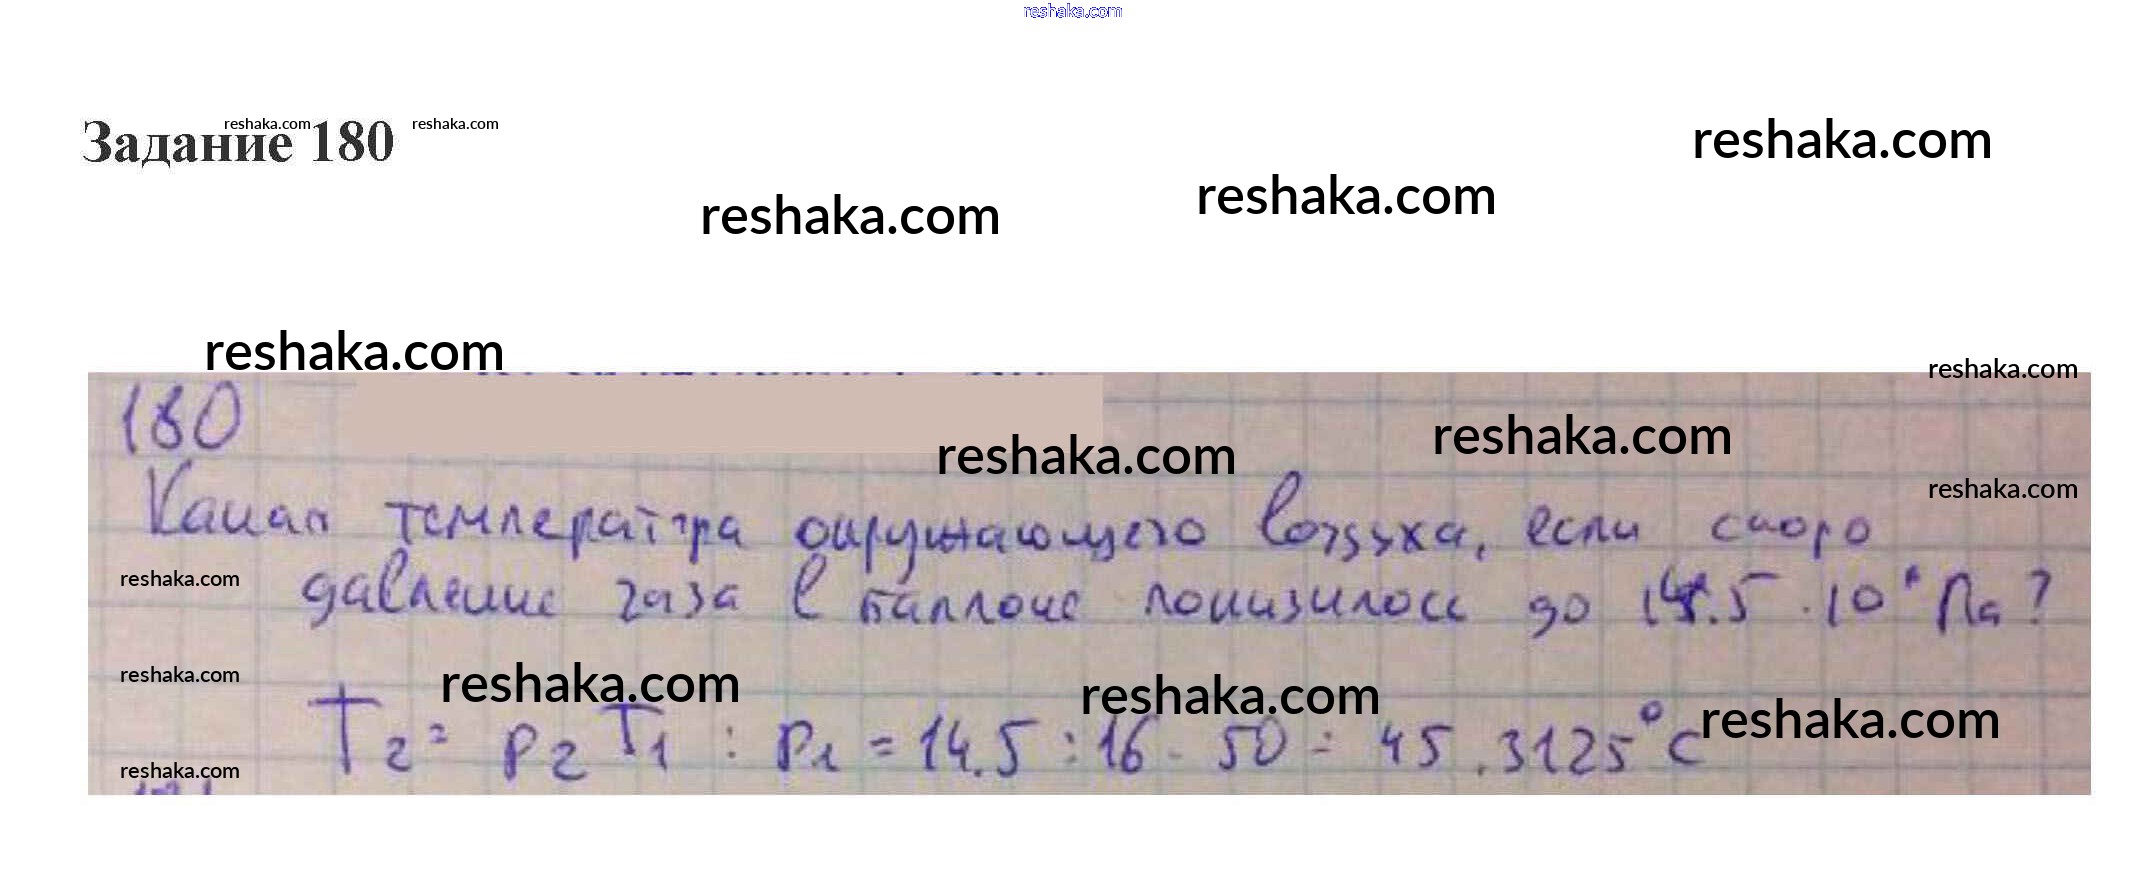 reshaka.com
Задание 180 reshaka.com reshaka.com
reshaka.com
reshaka.com
reshaka.com
reshaka.com
reshaka.com
180
reshaka.com
reshaka.com
reshaka.com
Какая температура окружающего воздуха, если скоро
давление газа в баллоне понизилось до 14.5 · 10 Па?
reshaka.com
reshaka.com
reshaka.com
reshaka.com
reshaka.com
T2 = P2 T1 : P1 = 14.5 : 16 · 50 = 45.3125°C
reshaka.com